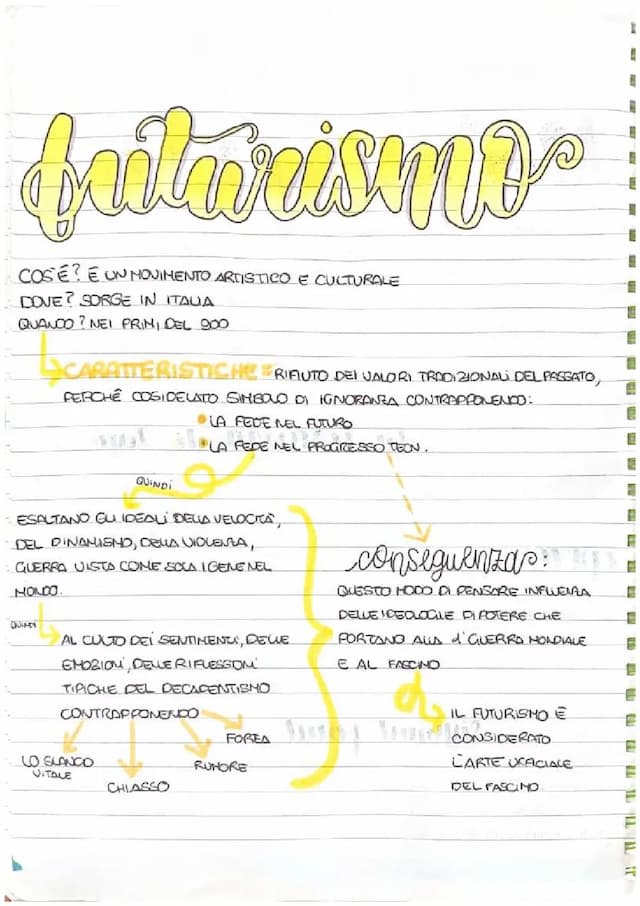 futurismo
COS'È? È UN MOVIMENTO ARTISTICO E CULTURALE
DOVE? SORGE IN ITALIA
QUANDO? NEI PRIMI DEL 900
CARATTERISTICHE = RIFIUTO DEI VALORI TRADIZIONALI DEL PASSATO,
PERCHÈ COSIDELATO SIMBOLO DI IGNORANZA CONTRAPPONENDO:
• LA FEDE NEL FUTURO
• LA FEDE NEL PROGRESSO TECN.
QUINDI
ESALTANO GLI IDEALI DELLA VELOCITÀ,
DEL DINAMISMO, DELLA VIOLENZA,
GUERRA VISTA COME SOLA IGENE NEL
MONDO.
QUINDI
AL CULTO DEI SENTIMENTI, DELLE
EMOZIONI, DELLE RIFLESSIONI
TIPICHE DEL DECADENTISMO
CONTRAPPONENDO
FORZA
LO SLANCIO
VITALE
RUMORE
CHIASSO
conseguenza:
QUESTO MODO DI PENSARE INFLUENZA
DELLE IDEOLOGIE DI POTERE CHE
PORTANO ALLA 1ª GUERRA MONDIALE
E AL FASCINO
IL FUTURISMO È
CONSIDERATO
L'ARTE UFFICIALE
DEL FASCINO.